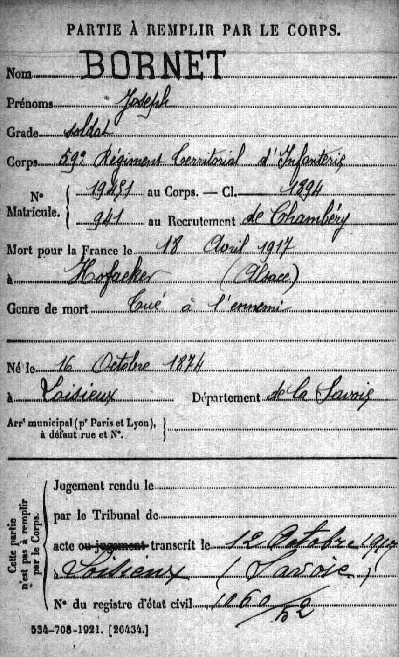 PARTIE À REMPLIR PAR LE CORPS.
Nom BORNET
Prénoms Joseph
Grade soldat
Corps 59e Régiment Territorial d'Infanterie
N° Matricule. { 19451 au Corps. — Cl. 1894
941 au Recrutement de Chambéry
Mort pour la France le 18 Avril 1917
à Hofacker (Alsace)
Genre de mort Tué à l'ennemi
Né le 16 Octobre 1874
à Loisieux Département de la Savoie
Arrt municipal (pr Paris et Lyon), à défaut rue et N°. {
Cette partie n'est pas à remplir par le Corps.
Jugement rendu le
par le Tribunal de
acte ou jugement transcrit le 12 Octobre 1917
Loisieux (Savoie)
N° du registre d'état civil 1860/52
534-708-1921. [26434.]